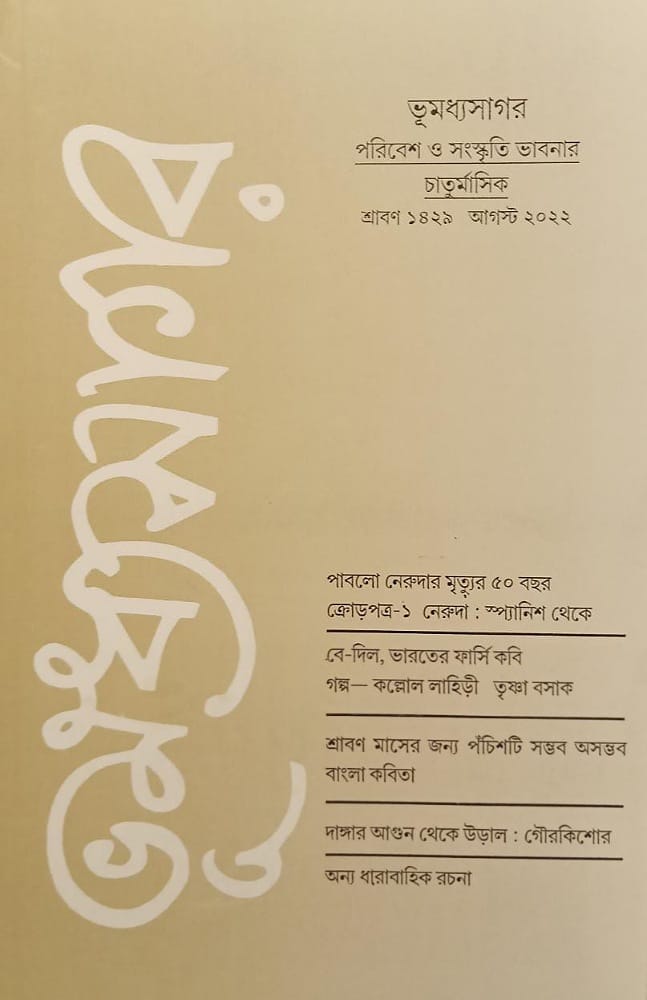 ভূমধ্যসাগর
ভূমধ্যসাগর
পরিবেশ ও সংস্কৃতি ভাবনার
চাতুর্মাসিক
শ্রাবণ ১৪২৯ আগস্ট ২০২২
পাবলো নেরুদার মৃত্যুর ৫০ বছর
ক্রোড়পত্র-১ নেরুদা : স্প্যানিশ থেকে
বে-দিল, ভারতের ফার্সি কবি
গল্প— কল্লোল লাহিড়ী তৃষ্ণা বসাক
শ্রাবণ মাসের জন্য পঁচিশটি সম্ভব অসম্ভব
বাংলা কবিতা
দাঙ্গার আগুন থেকে উড়াল : গৌরকিশোর
অন্য ধারাবাহিক রচনা